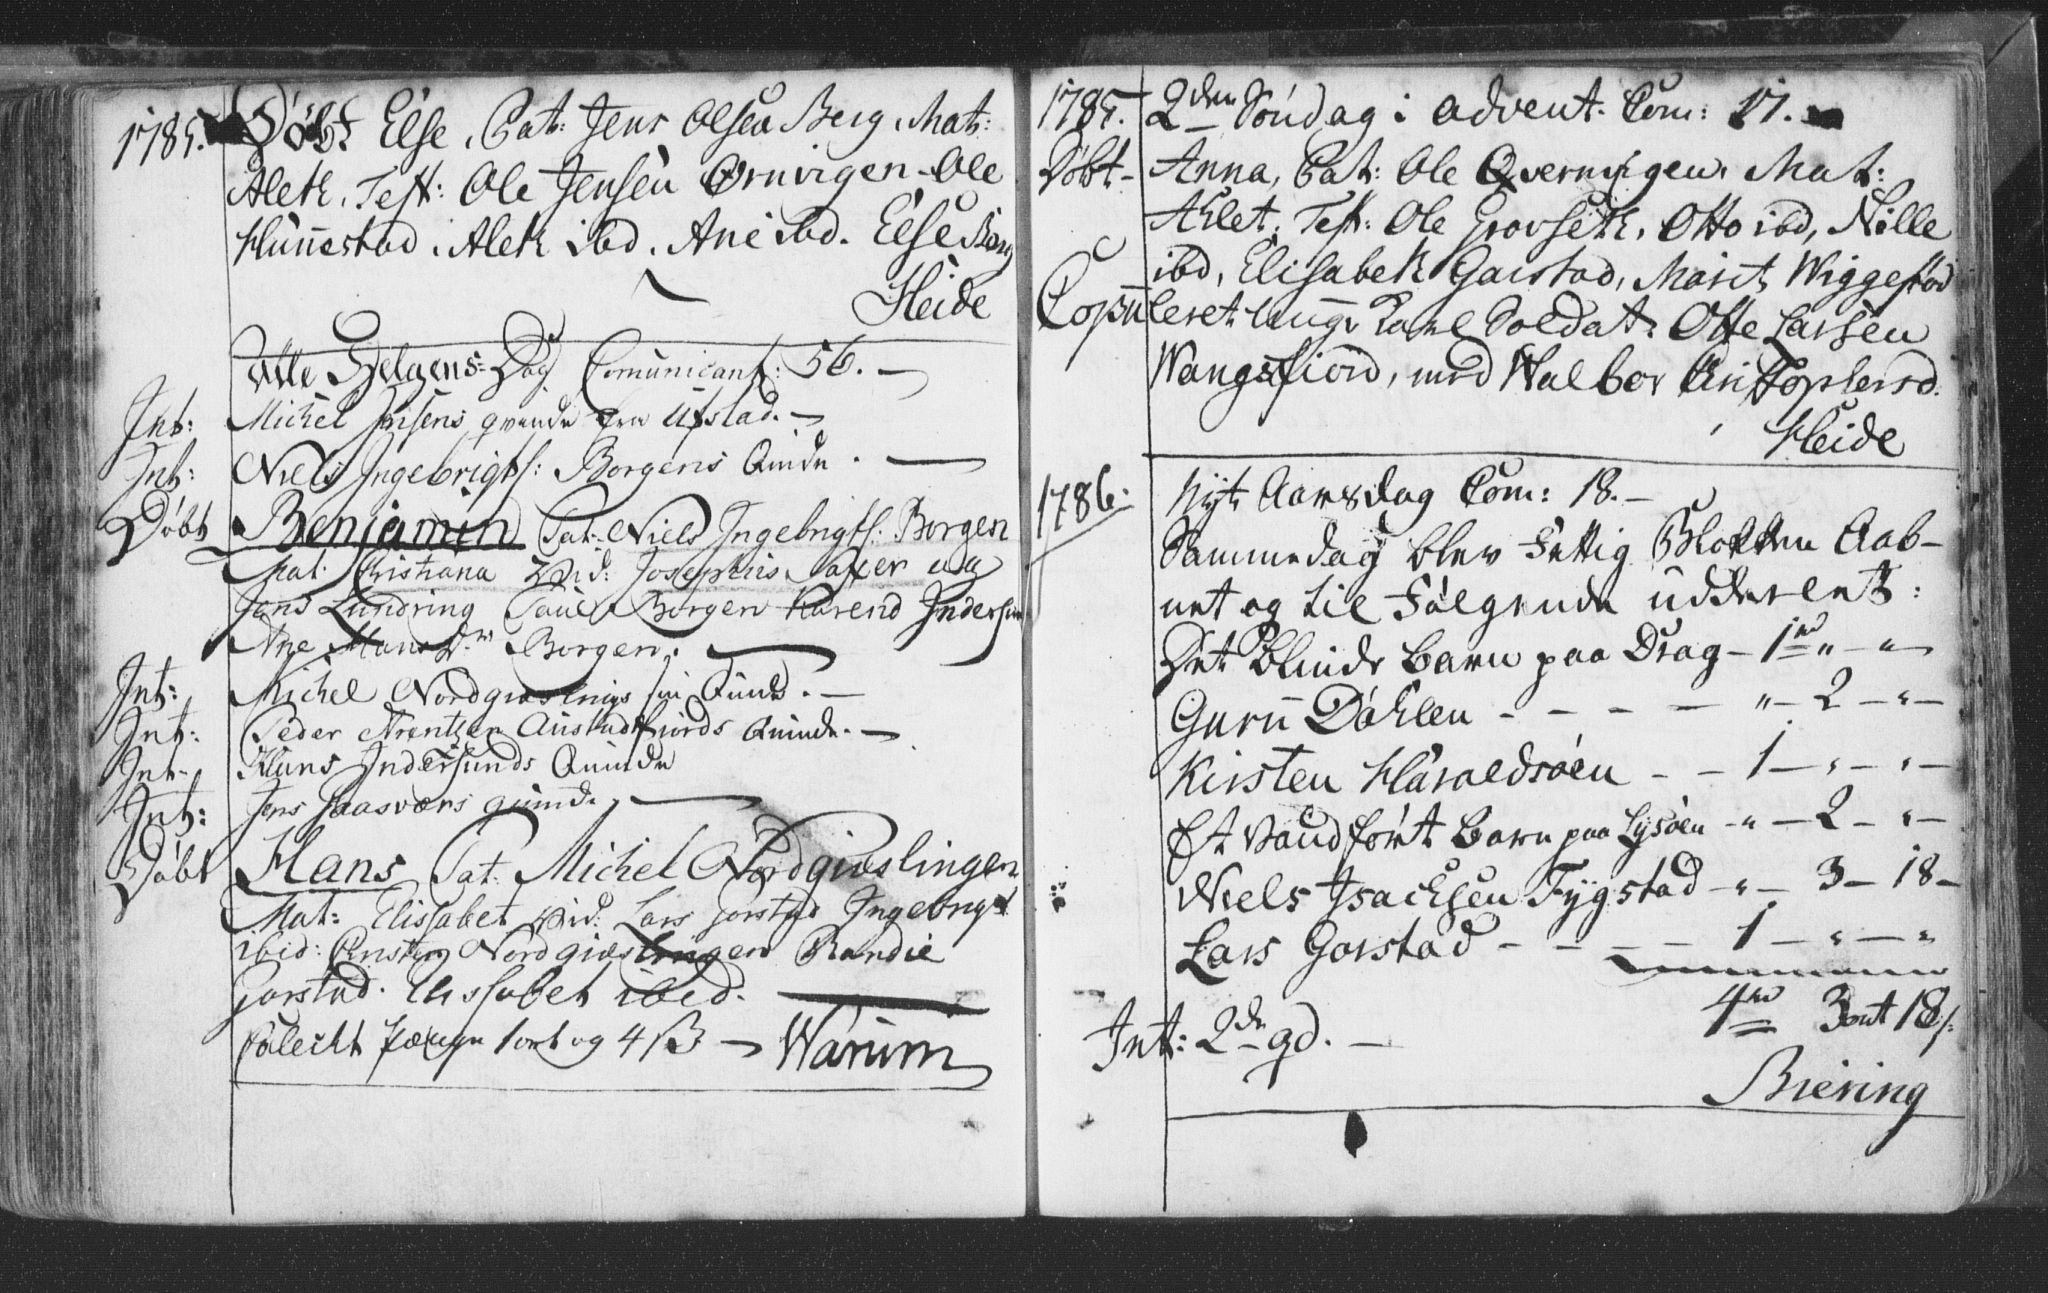 1785. Döbt Else, Pat: Jens Olsen Berg, Mat:
Aleth, Test: Ole Jensen Ornvigen Ole
Hunnestad, Aleth ibd, Ane ibd. Else Berg
Heide
Alle Helgens Dag Comunicant: 56.
Int: Michel Jensens qvinde fra Ufstad.
Int: Niels Ingebrigts: Borgens Quinde.
Döbt Benjamin Pat: Niels Ingebrigts: Borgen
Mat: Kristiana Vid: Josephus
Jens Lundring Borgen Karend Indersun
Ane Hans Dr Borgen.
Int: Michel Nordgiæslings Quinde.
Int: Peder Arentzen Austadfiords Quinde.
Int: Hans Indersunds Quinde
Int: Jens Haasværs quinde,
Döbt Hans Pat: Michel Nordgiæslingen
Mat: Elissabet Vid: Lars Gorstad Ingebrigt
ibid: Nordgiæslingen Randie
Gorstad. Elissabet ibid.
1 ort og 4 ß Warum
1785. 2den Söndag i advent. Com: 17.
Döbt Anna, Pat: Ole Qvernvigen, Mat:
Ahlet, Test: Ole Grovseth, Otto ibd, Nille
ibd, Elisabeth Garstad, Marit Wiggestad
Copuleret unge Karl Soldat Otte Larsen
Wangsfiord, med Walbor Cristophersd.
Heide
1786. Nyt Aarsdag Com: 18.
Sammedag blev Fattig Blokken Aab-
net og til Følgende uddeelet:
Det blinde barn paa Drag - 1rd " - "
Guru Döhlen - - - - " - 2 - " -
Kirsten Haraldsöen - - 1 - " - " -
Et vandfört barn paa Lysöen - " - 2 - " -
Niels Isachsen Fygstad - " - 3 - 18 -
Lars Gorstad - - - - 1 - " - "
4rd 3ort 18s.
Int: 2de gd.
Biering